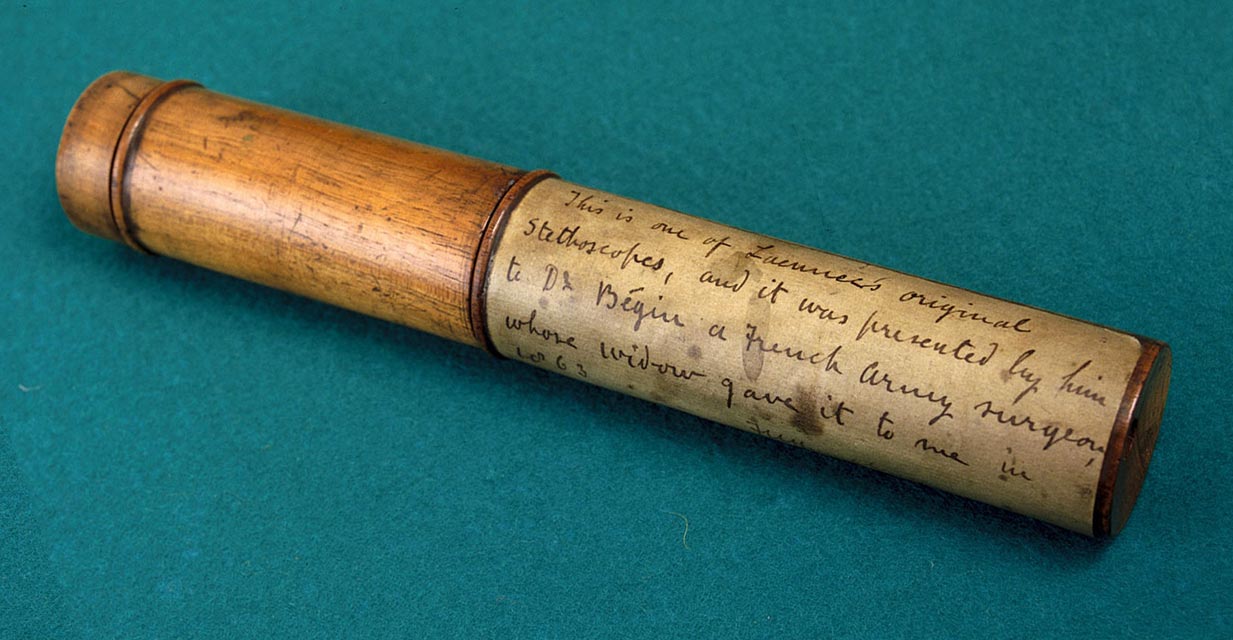 This is one of Laennec's original
Stethoscopes, and it was presented by him
to Dr Bégin a French Army surgeon,
whose widow gave it to me in
1863